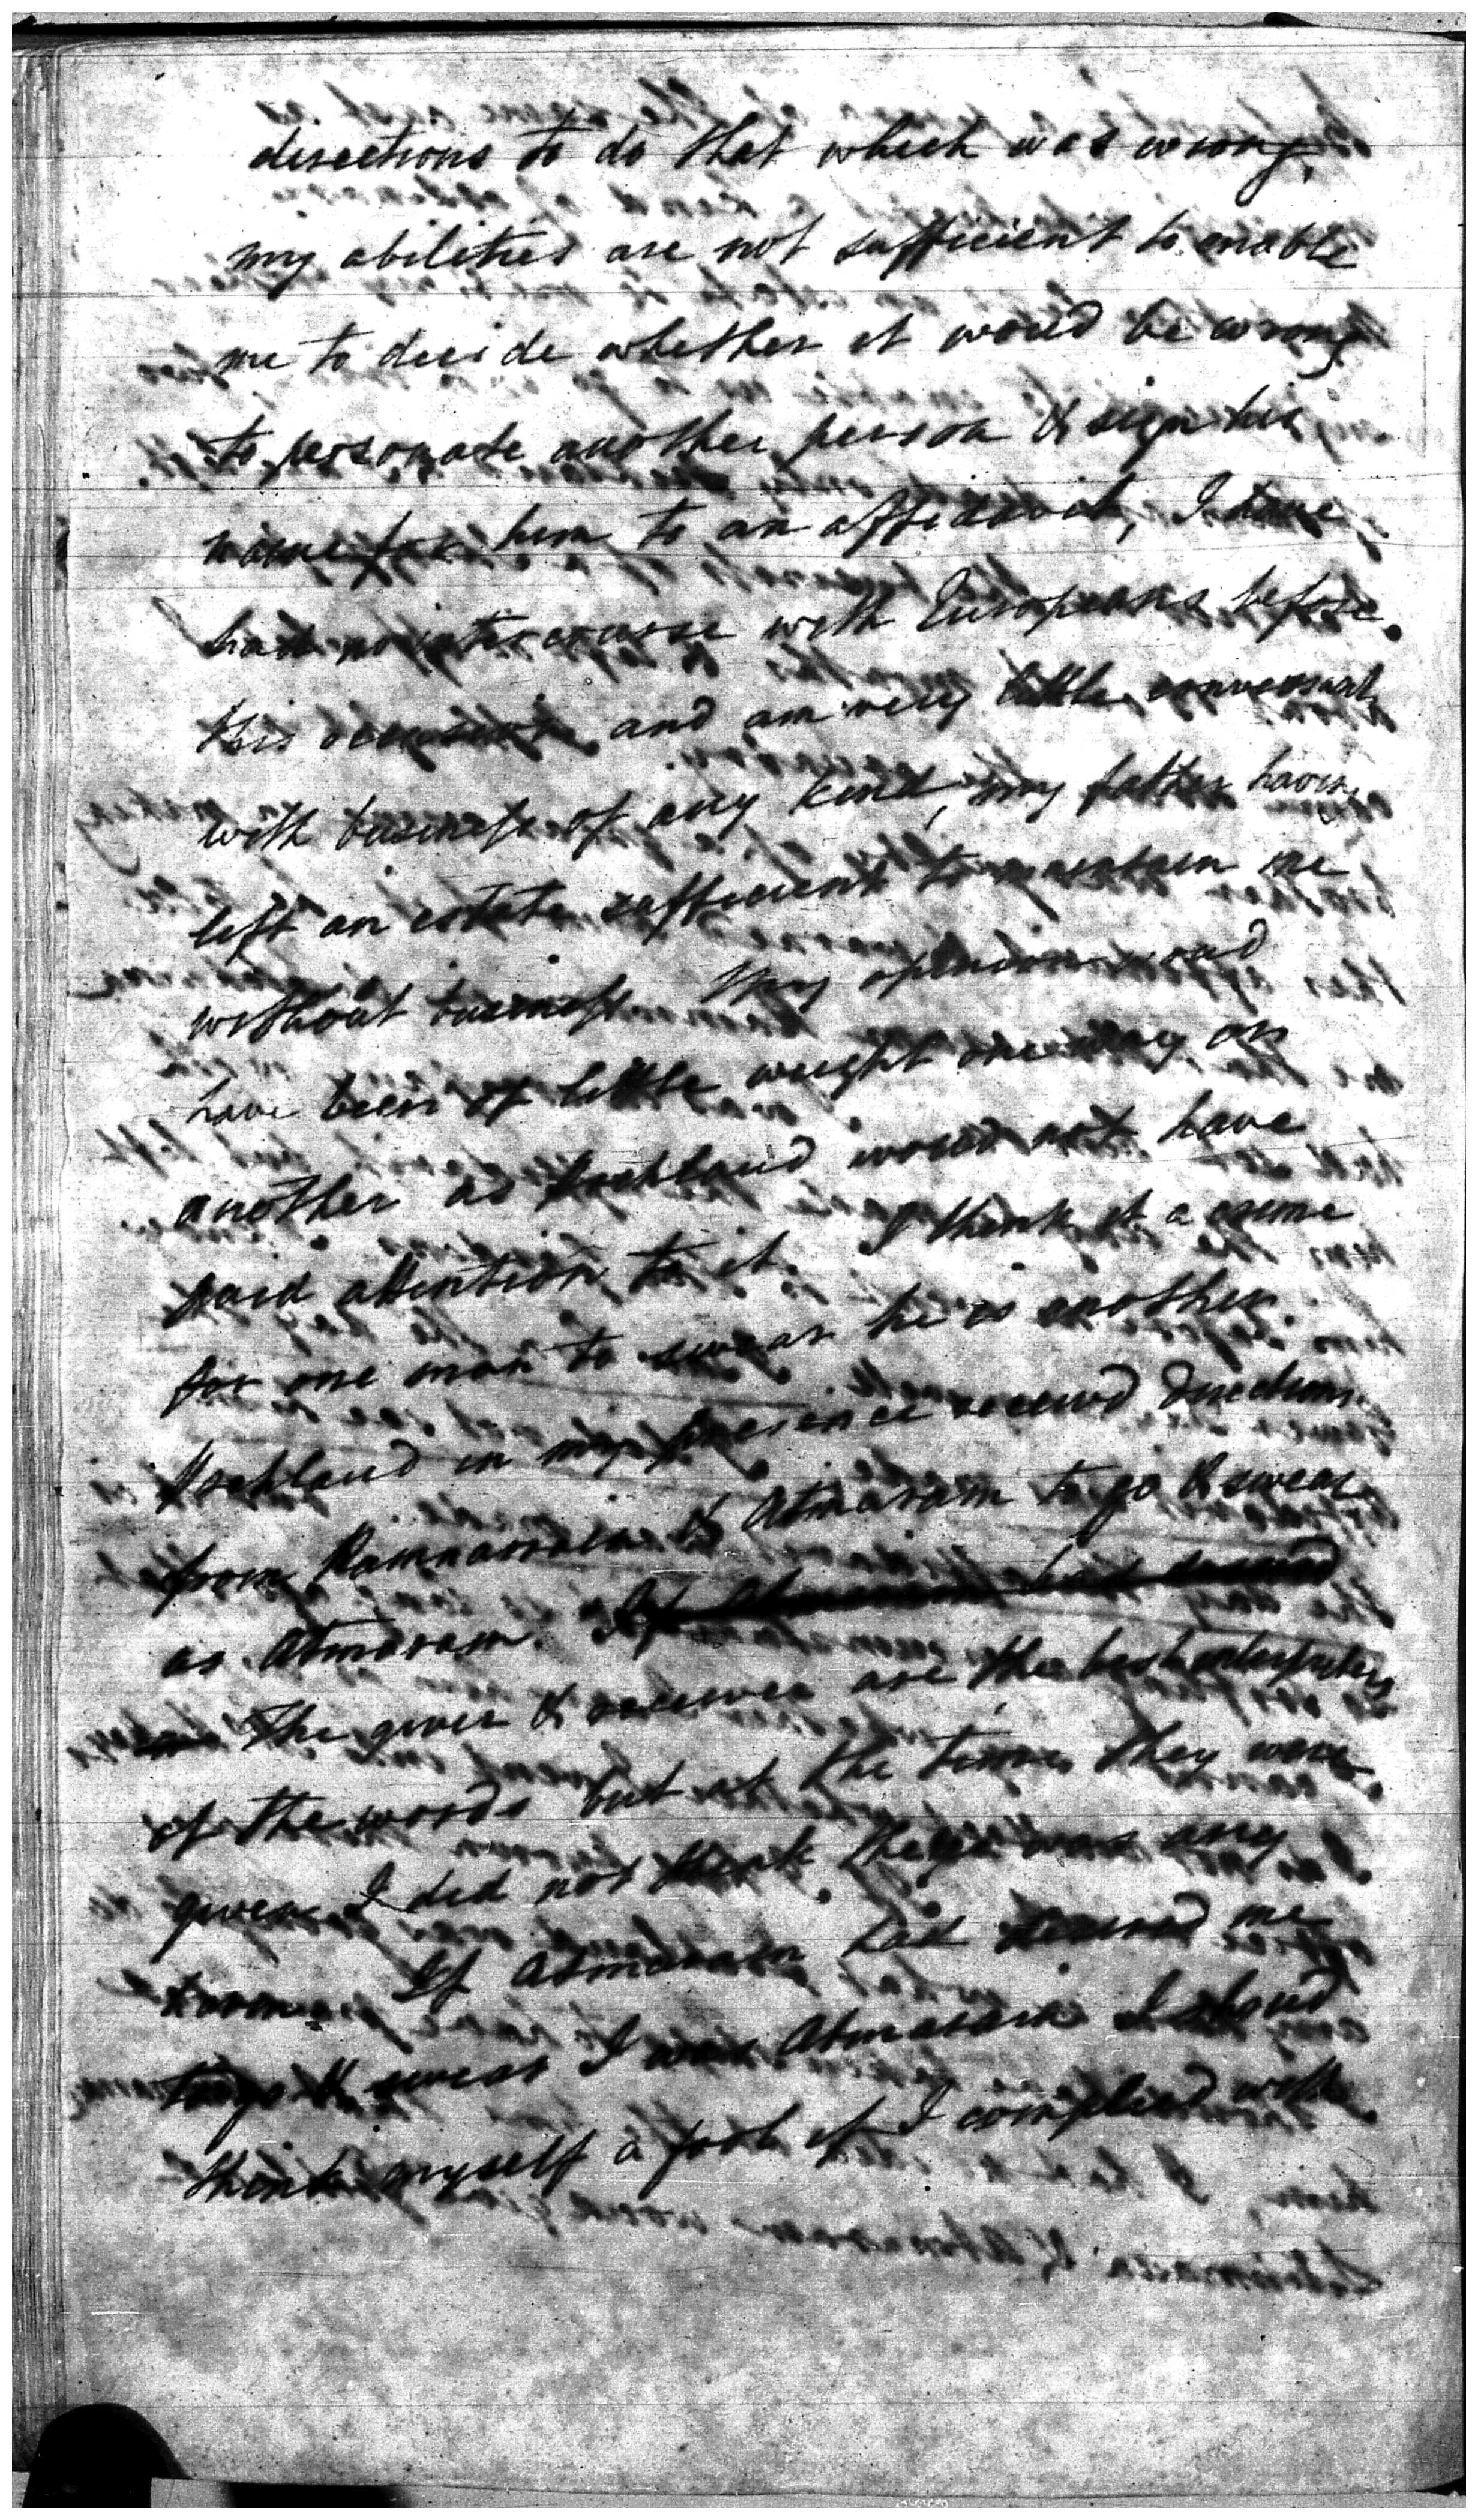 directions to do that which was wrong.
my abilities are not sufficient to enable
me to decide whether it would be wrong
to personate another person & sign his
name for him to an affidavit, I have
had no intercourse with Europeans before
this occasion and am very little conversant
with business of any kind, my father having
left an estate sufficient to maintain me
without business. My opinion woud
have been of little weight one way or
another as would not have
paid attention to it. I think it a crime
for one man to swear he is another
in my presence received directions
from Ramnarrain & Atmaram to go & swear
as Atmaram. If Atmaram had
The giver & receiver are the best interpreters
of the words but at the time they were
given I did not think there was any
If Atmaram had desired me
to go & swear I was Atmaram I shoud
think myself a fool if I complied with